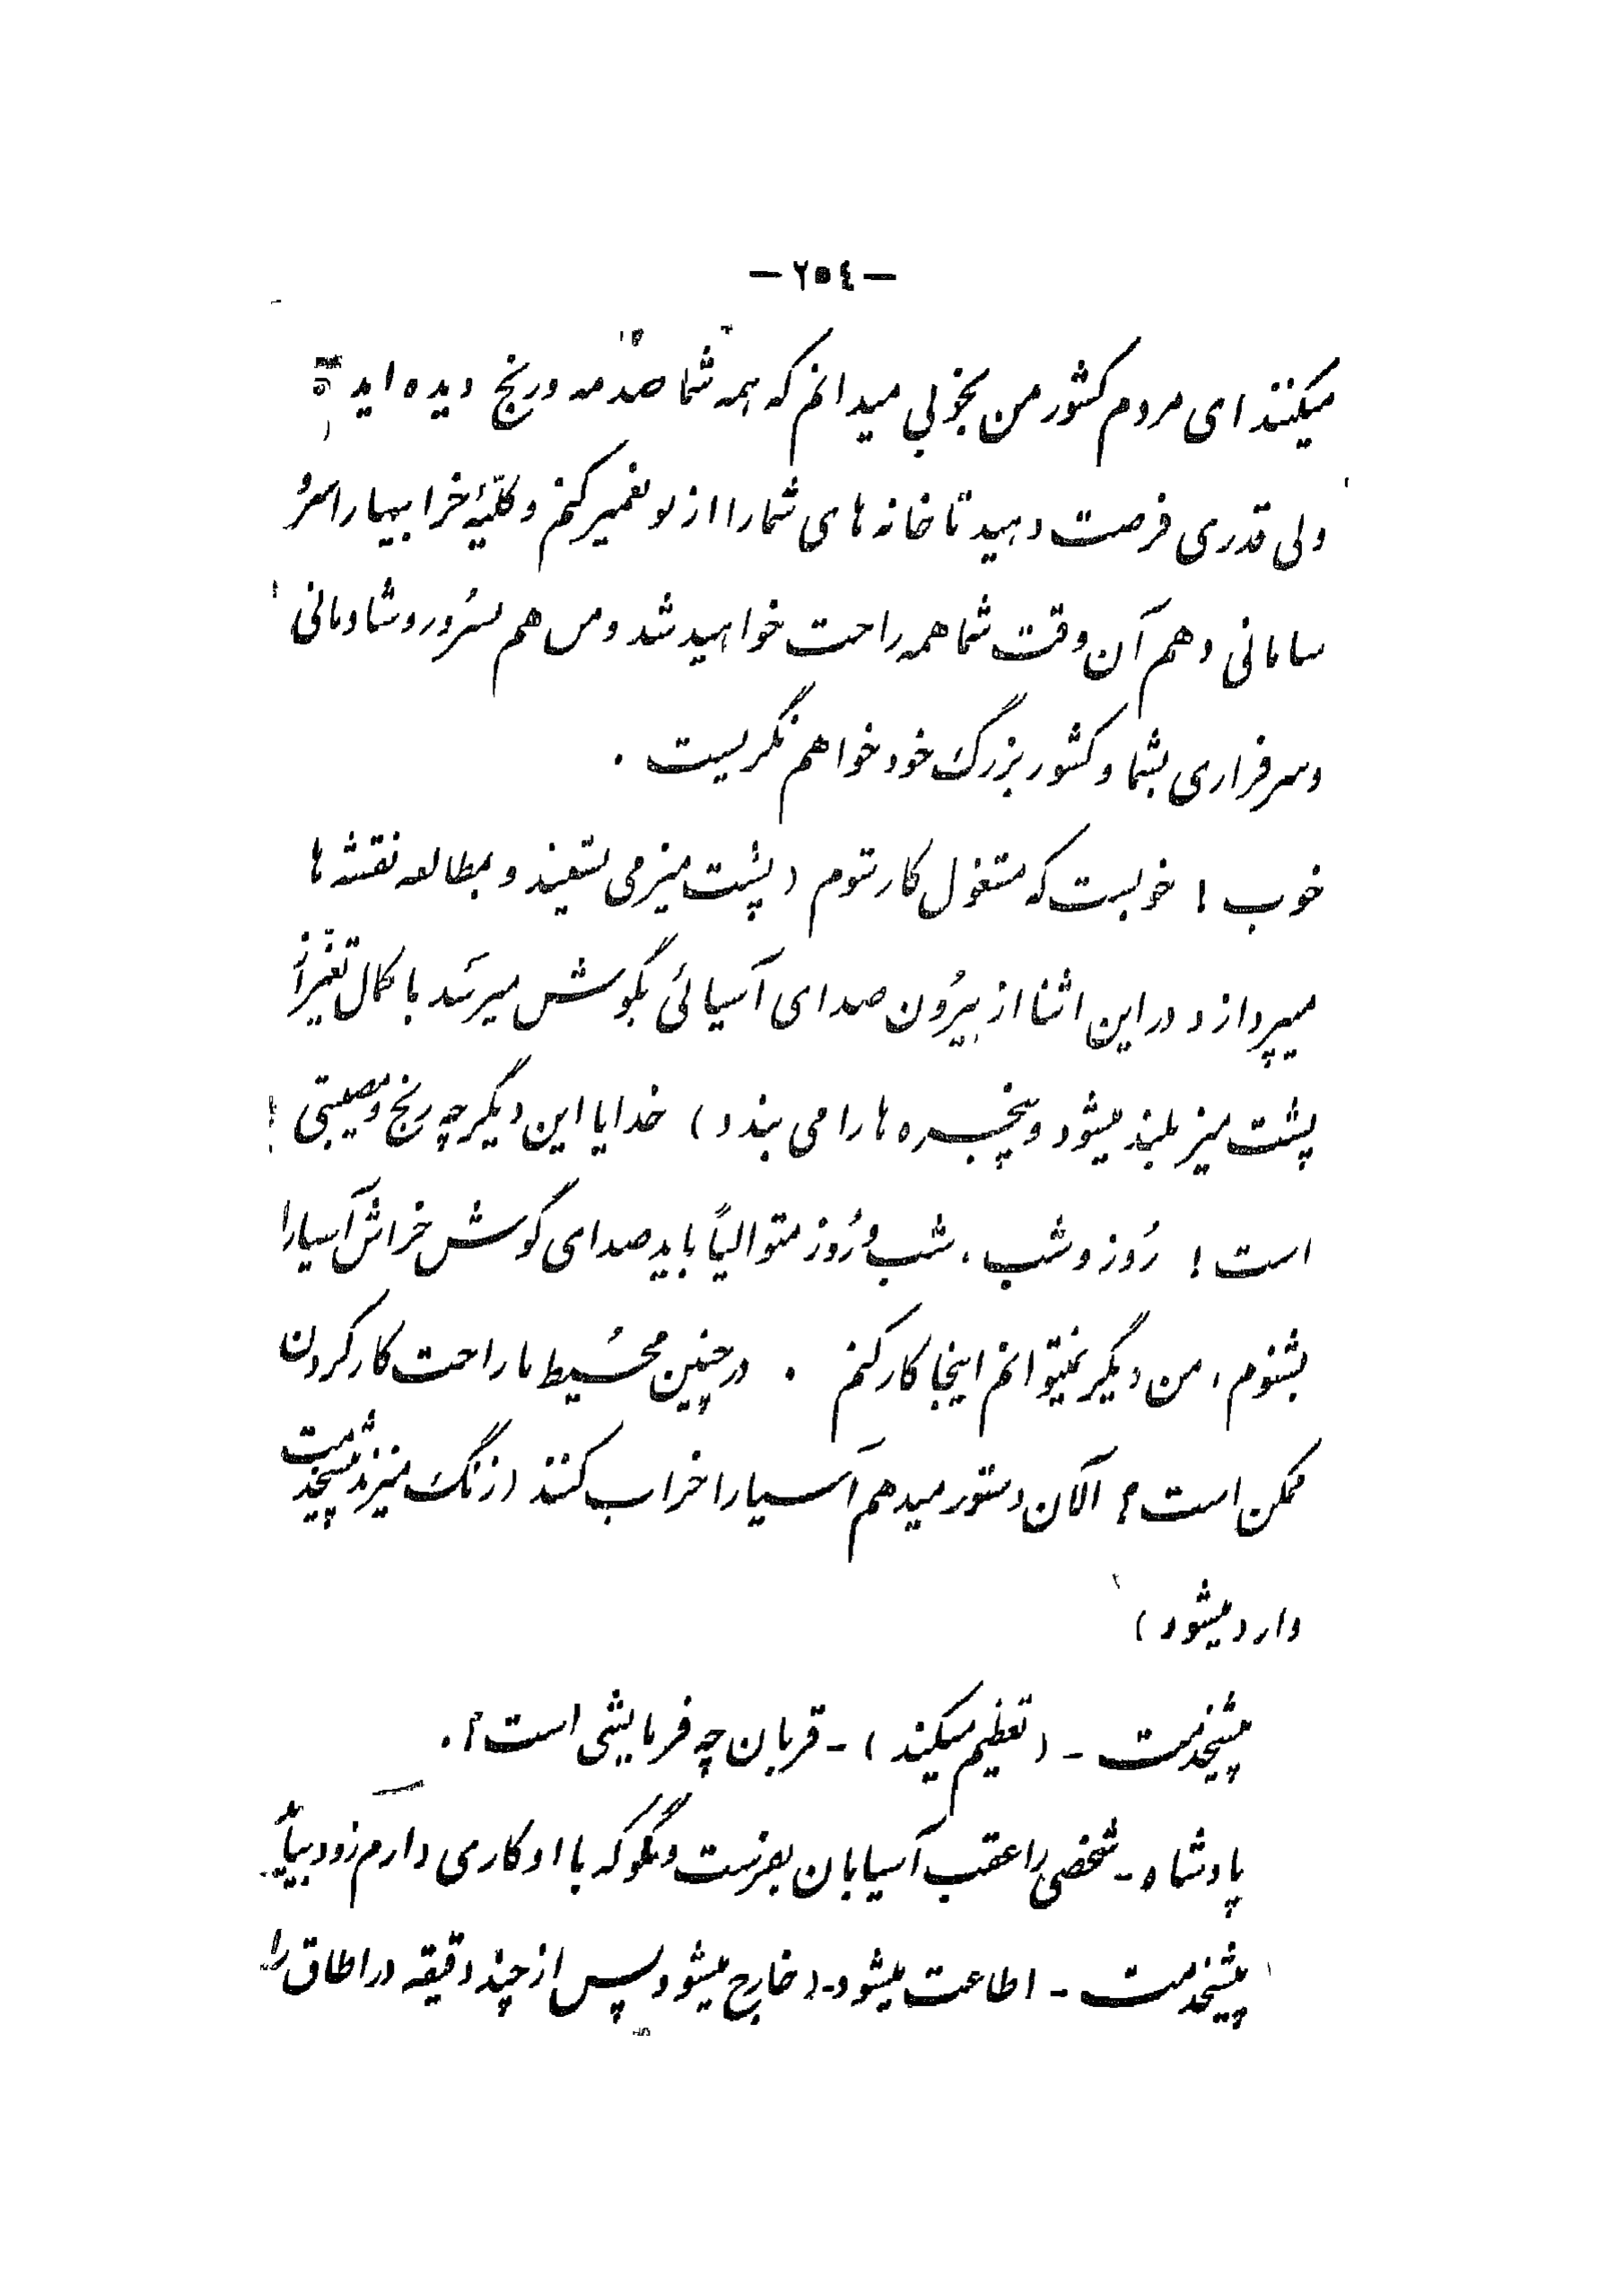 — ٢٥٤ —
میکنند ای مردم کشور من بخوبی میدانم که همه شما صدمه و رنج دیده اید
ولی قدری فرصت دهید تا خانه های شما را از نو تعمیر کنم و کلیّۀ خرابیها را سر و
سامانی دهم آن وقت شما همه راحت خواهید شد و من هم بسُرور و شادمانی
و سرفرازی بشما و کشور بزرگ خود خواهم نگریست .
خوب ! خوبست که مشغول کار شوم ( پشت میز می نشیند و بمطالعه نقشه ها
میپردازد در این اثنا از بیرُون صدای آسیائی بگوش میرسَد با کمال تغیّر از
پشت میز بلند میشود و پنجره ها را می بندد ) خدایا این دیگر چه رنج و مصیبتی
است ! رُوز و شب ، شب و رُوز متوالیاً باید صدای گوش خراش آسیا را
بشنوم ، من دیگر نمیتوانم اینجا کار کنم . در چنین محیُط نا راحت کار کردن
ممکن است ؟ الآن دستور میدهم آسیا را خراب کنند ( زنگ میزند پیشخدمت
وارد میشود )
پیشخدمت - ( تعظیم میکند ) - قربان چه فرمایشی است ؟ .
پادشاه - شخصی را عقب آسیابان بفرست و بگو که با او کاری دارم زود بیاید
پیشخدمت - اطاعت میشود - ( خارج میشود پس از چند دقیقه در اطاق را